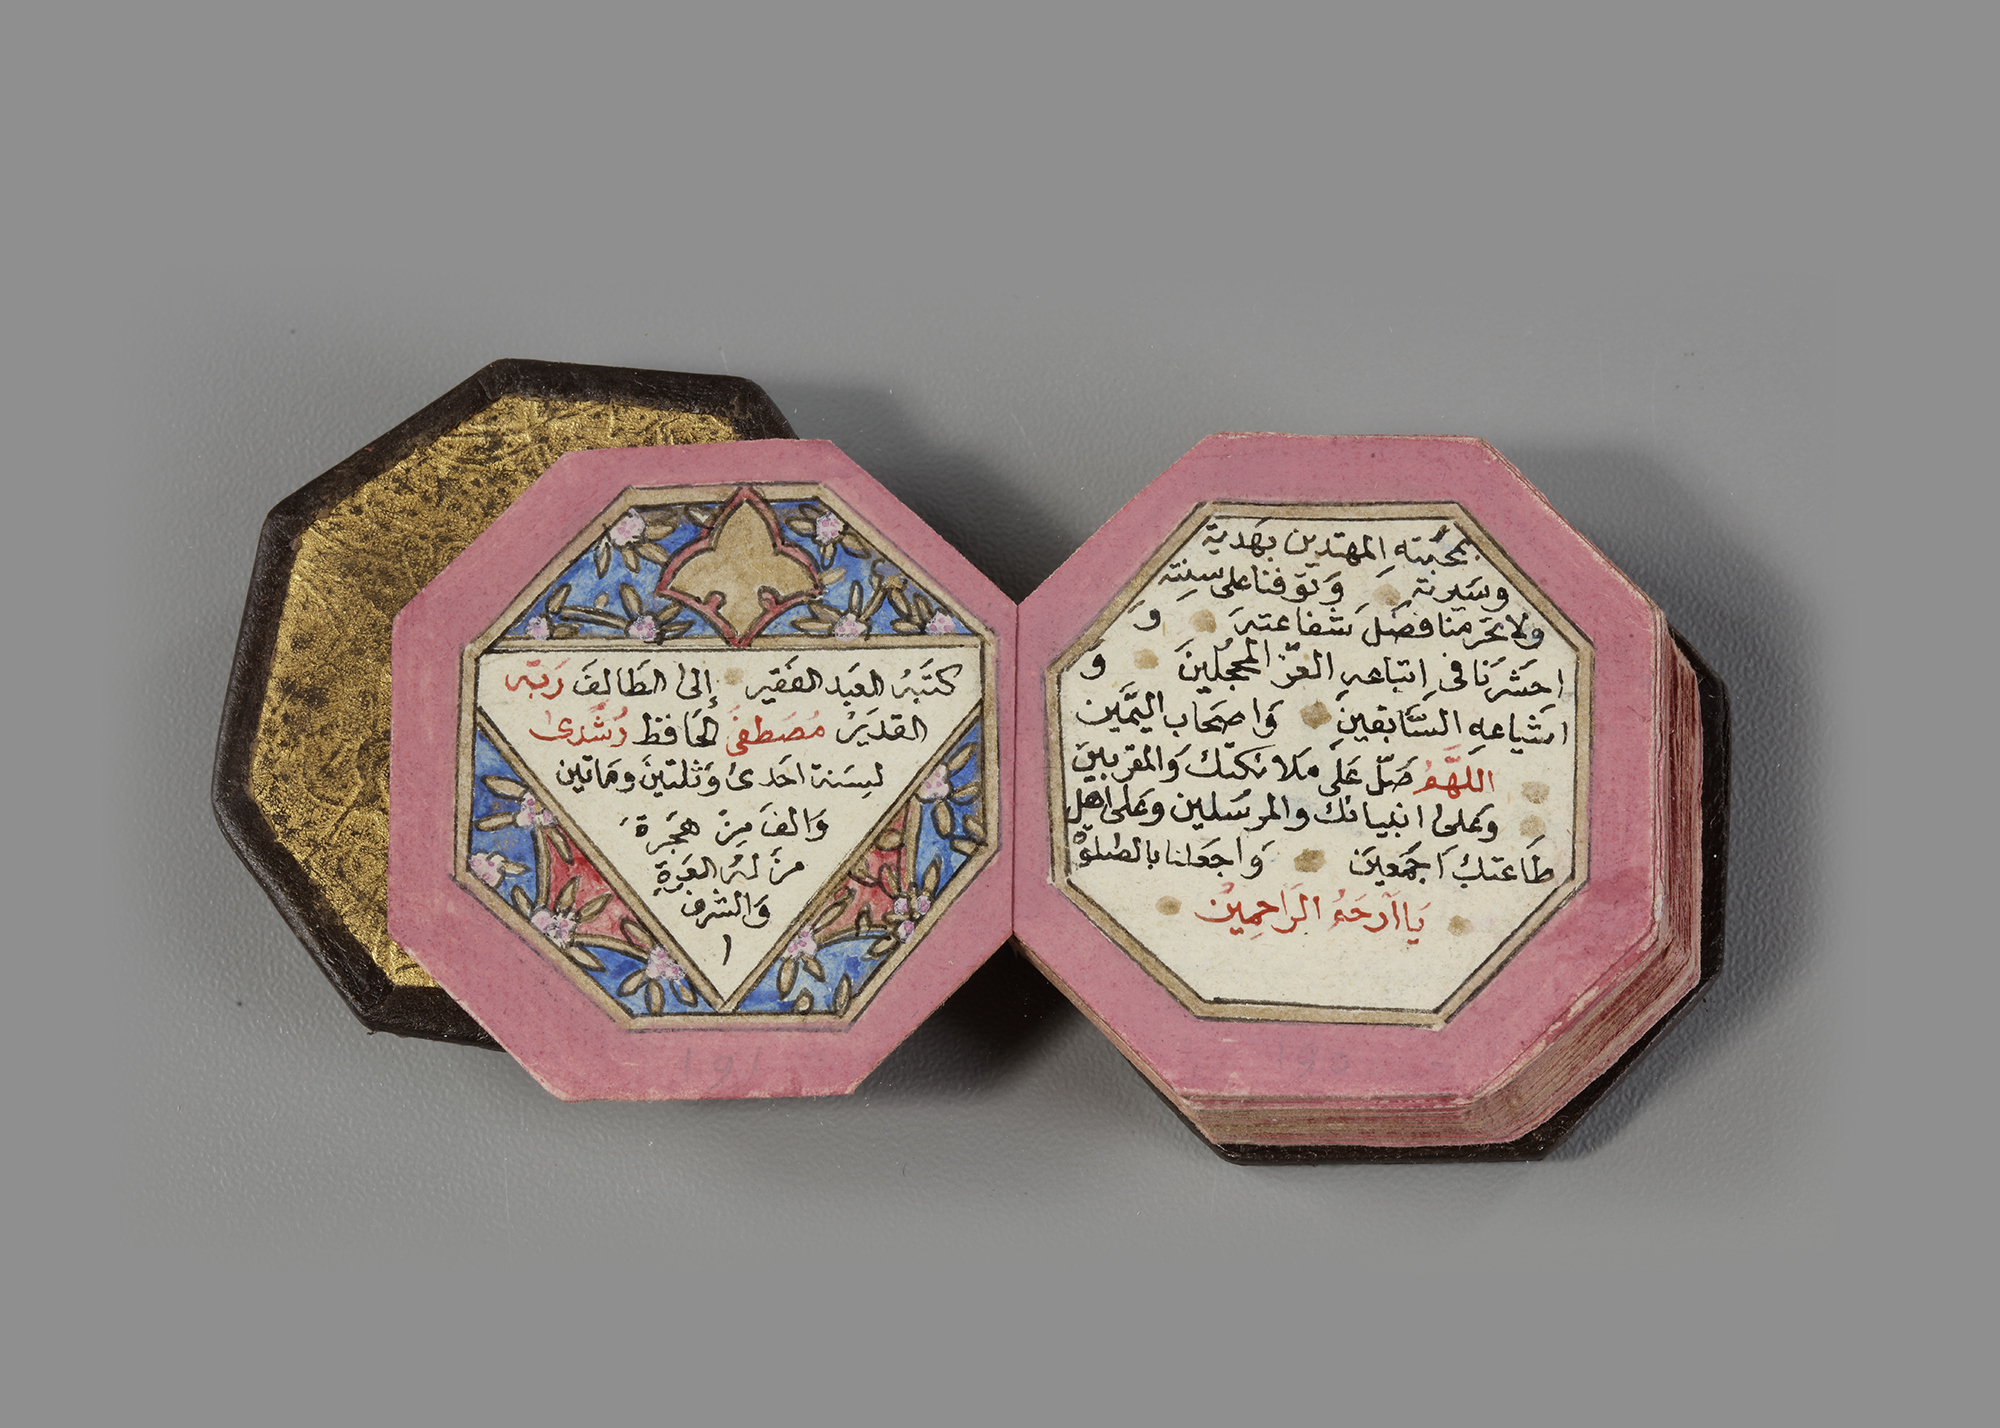 بمحبته المهتدين بهدية
وسيرته وتوفنا على سنته
ولا تحرمنا فضل شفاعته و
احشرنا فى اتباعه الغرّ المحجلين و
اشياعه السّابقين واصحاب اليمين
اللهمّ صلّ على ملائكتك والمقربين
وعلى انبيائك والمرسلين وعلى اهل
طاعتك اجمعين واجعلنا بالصلوة
يا ارحم الراحمين
كتبه العبد الفقير إلى الطالف ربّه
القدير مصطفى الحافظ رشدى
لسنة احدى وثلثين ومأتين
والف من هجرة
من له العزة
والشرف
١